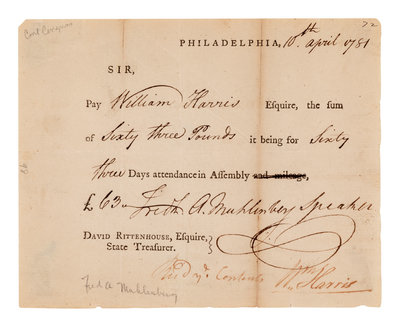 Cont Congress
72
PHILADELPHIA, 10.th april 1781
SIR,
PAY William Harris Esquire, the sum
of Sixty three Pounds it being for Sixty
three Days attendance in Assembly and mileage,
£ 63 Fredk. A. Muhlenberg Speaker
DAVID RITTENHOUSE, Esquire,
State Treasurer.
Recd ye. Contents Wm Harris
Fred A Muhlenberg